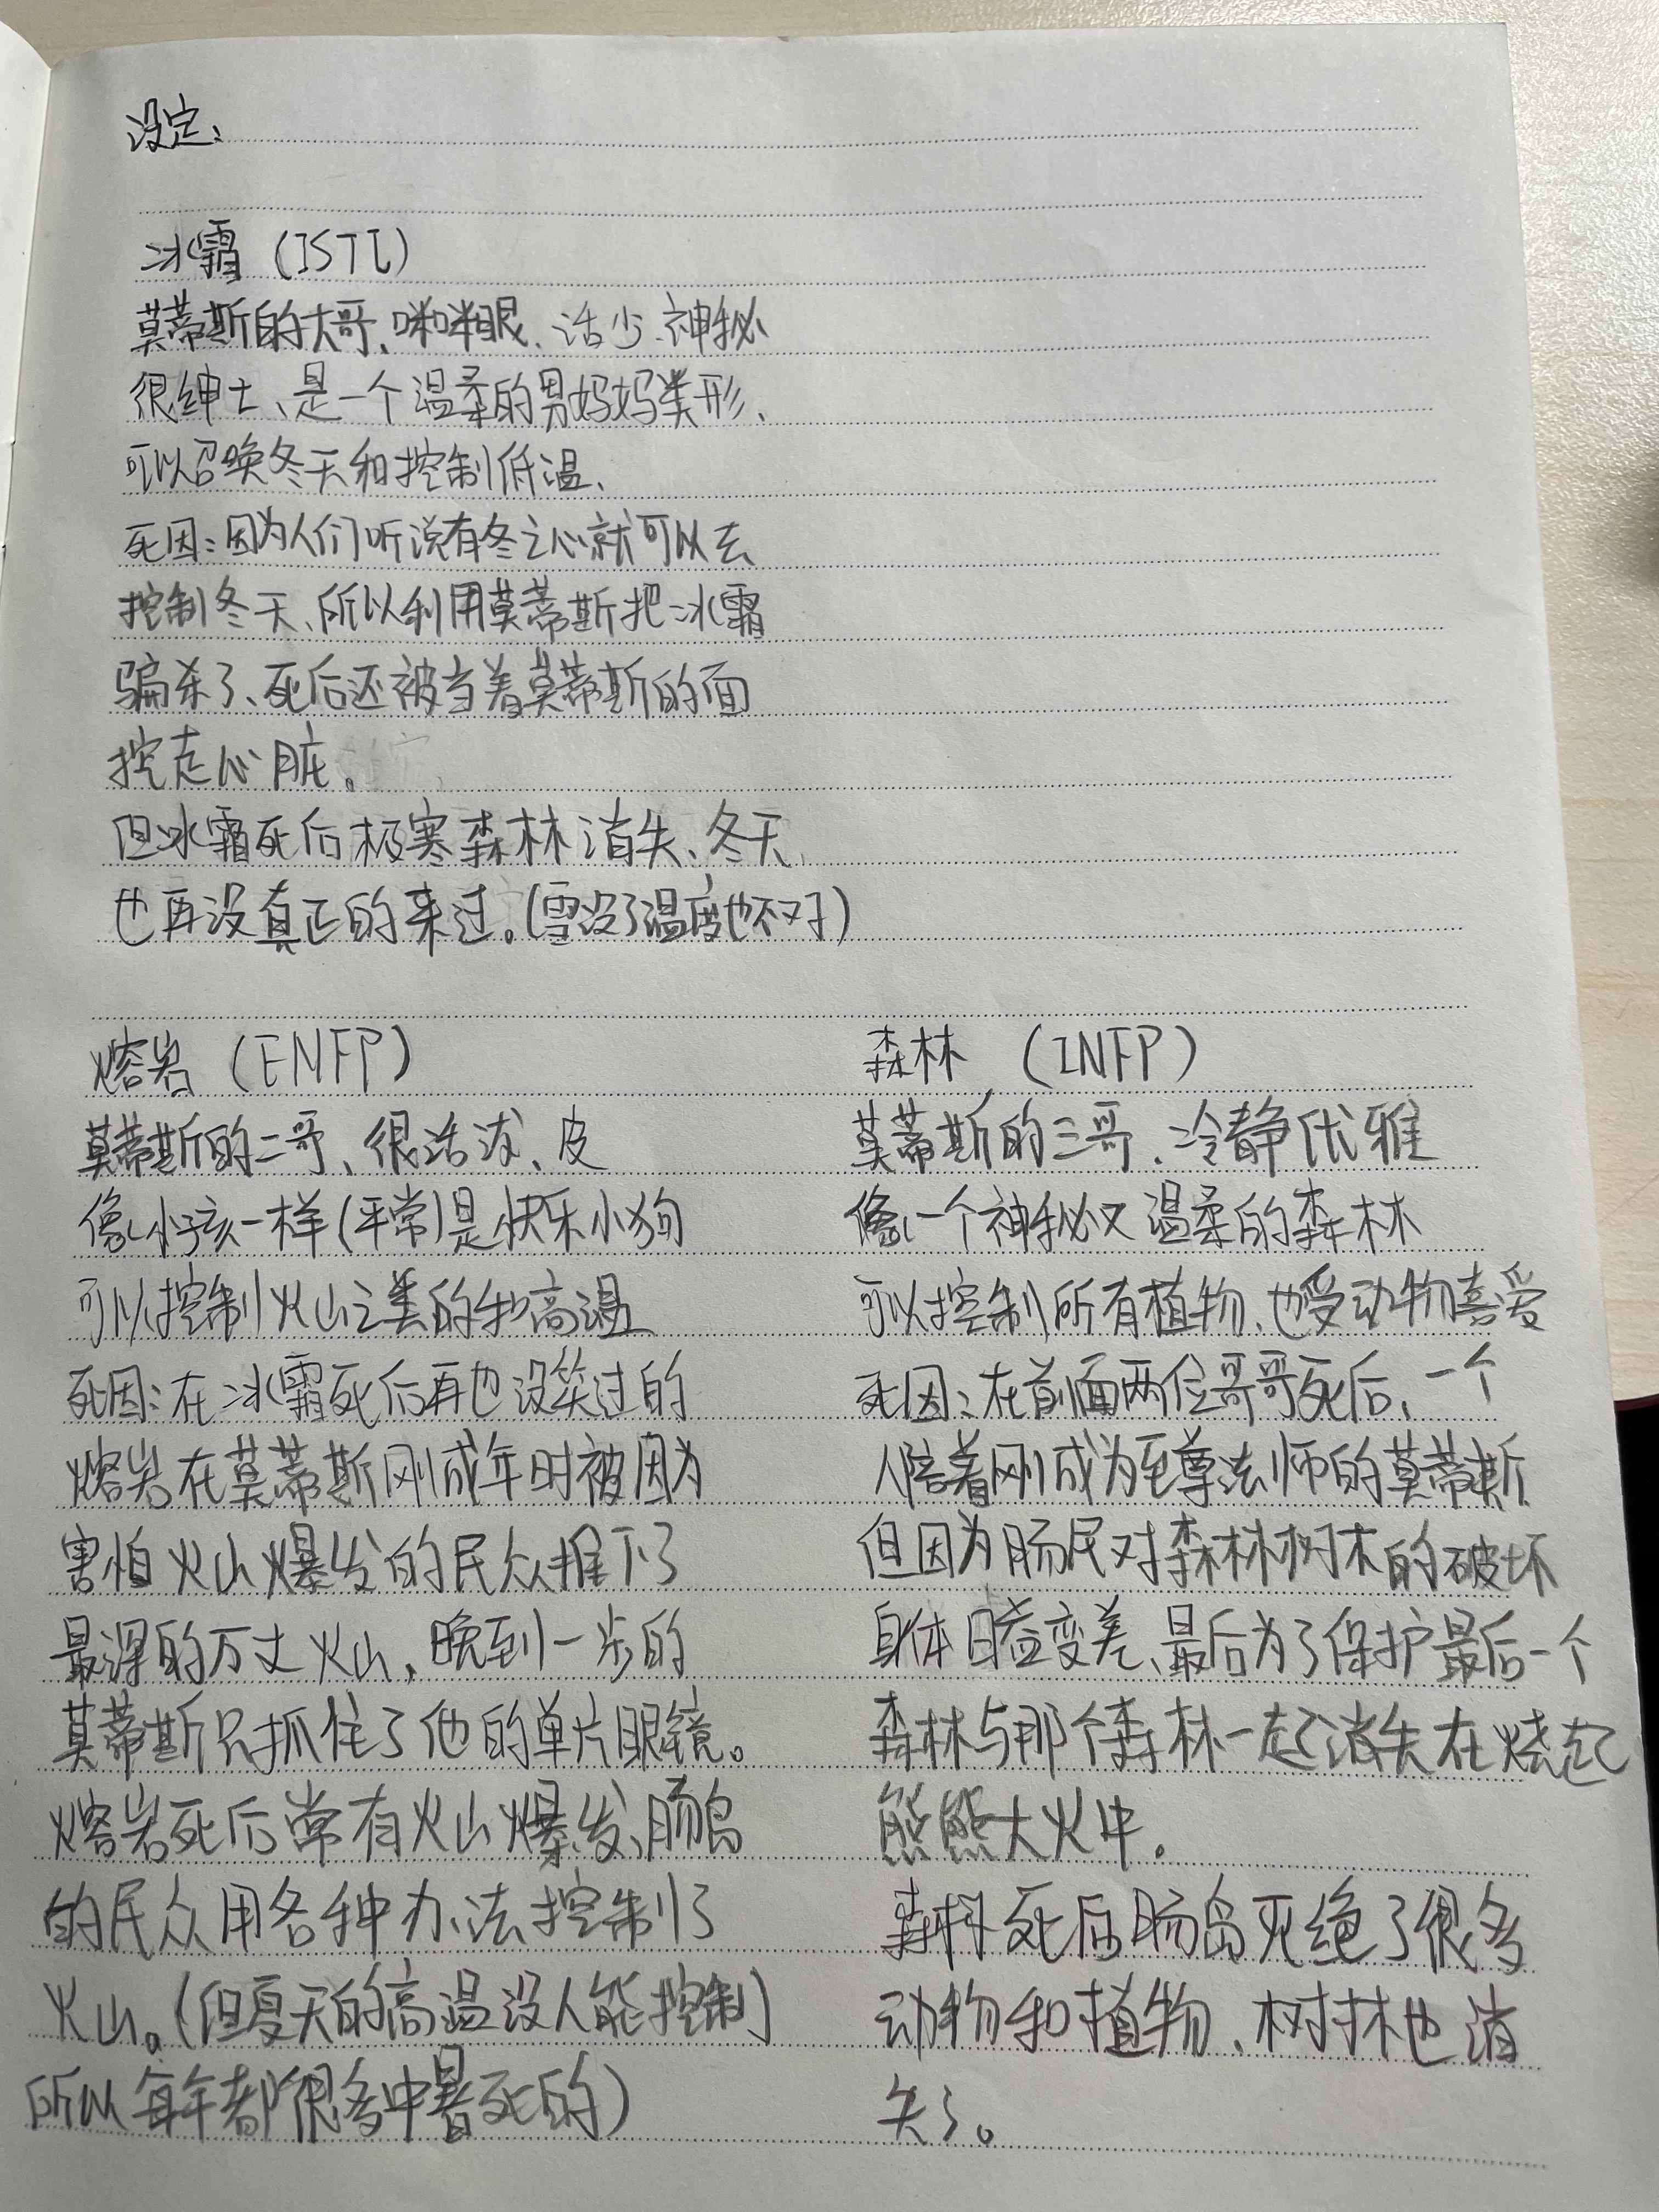 设定：
冰霜（ISTJ）
莫蒂斯的大哥、咪咪眼、话少、神秘
很绅士、是一个温柔的男妈妈类形、
可以召唤冬天和控制低温、
死因：因为人们听说有冬之心就可以去
控制冬天、所以利用莫蒂斯把冰霜
骗杀了、死后还被当着莫蒂斯的面
挖走心脏。
但冰霜死后极寒森林消失、冬天
也再没真正的来过。（雪没了温度也不对）
熔岩（ENFP）
莫蒂斯的二哥、很活泼、皮
像小孩一样（平常）是快乐小狗
可以控制火山之类的和高温
死因：在冰霜死后再也没笑过的
熔岩在莫蒂斯刚成年时被因为
害怕火山爆发的民众推下了
最深的万丈火山，晚到一步的
莫蒂斯只抓住了他的单片眼镜。
熔岩死后常有火山爆发、肠岛
的民众用各种办法控制了
火山。（但夏天的高温没人能控制
所以每年都很多中暑死的）
森林（INFP）
莫蒂斯的三哥、冷静优雅
像一个神秘又温柔的森林
可以控制所有植物、也受动物喜爱
死因：在前面两位哥哥死后、一个
人陪着刚成为至尊法师的莫蒂斯
但因为肠民对森林树木的破坏
身体日益变差、最后为了保护最后一个
森林与那个森林一起消失在烧起
熊熊大火中。
森林死后肠岛灭绝了很多
动物和植物、树林也消
失了。